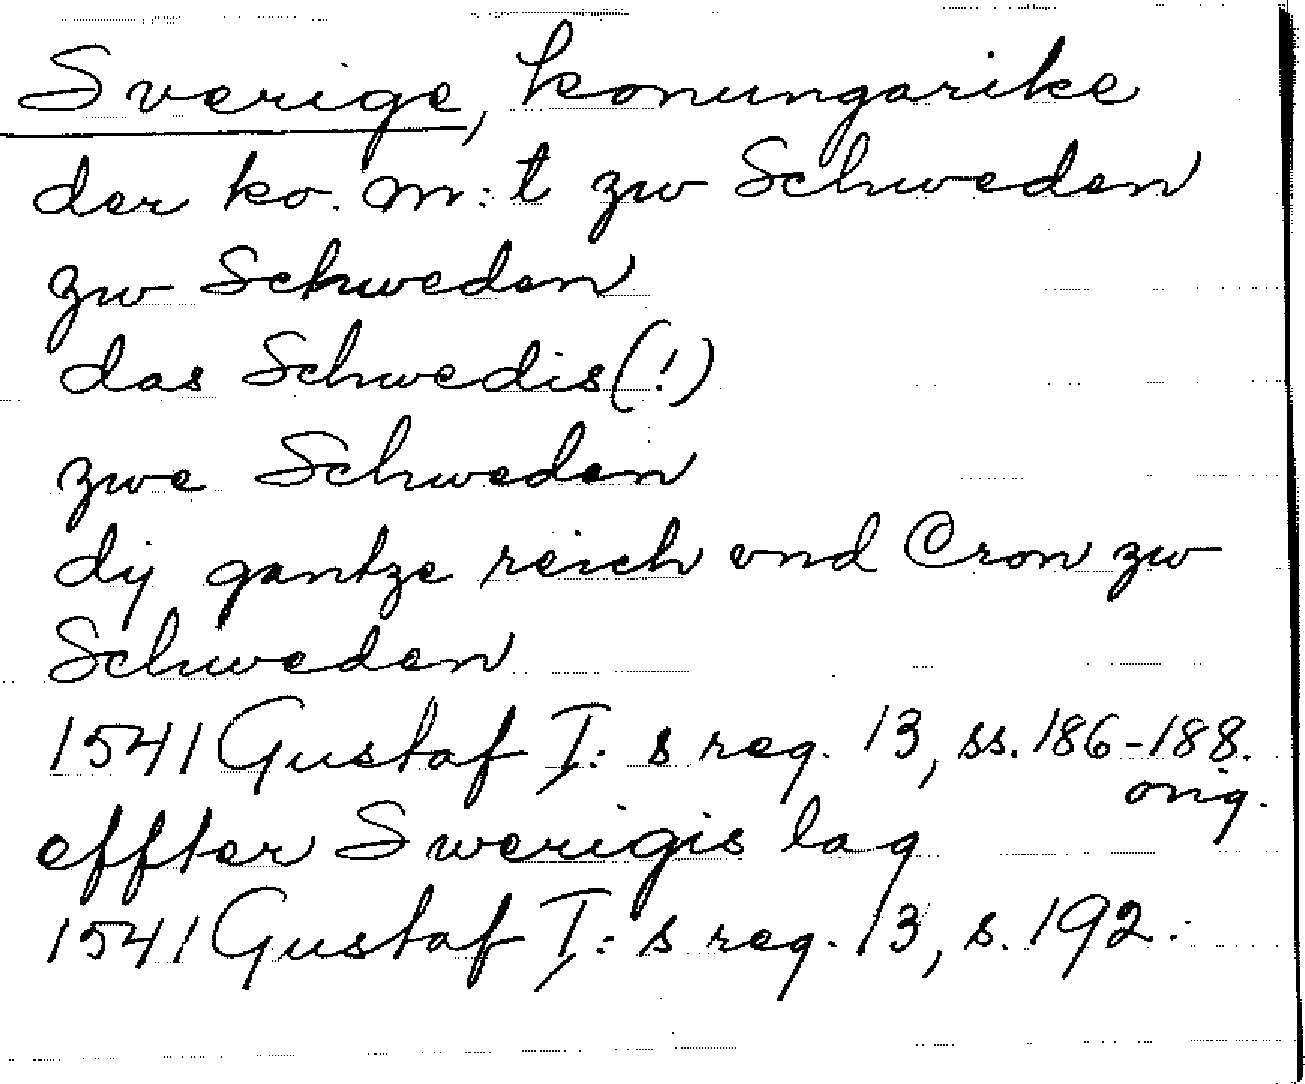 Sverige, konungarike
der ko. m:t zw Schweden
zw Schweden
das Schwedis(!)
zwe Schweden
dij gantze reich vnd Cron zw
Schweden
1541 Gustaf I:s reg. 13, ss. 186-188.
orig.
effter Swerigis lag
1541 Gustaf I:s reg. 13, s. 192.